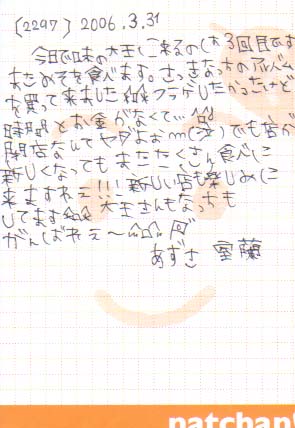 [2297] 2006.3.31
今日で味の大王に来るのはお3回目です
またみそを食べます。さっきなっちのアルバム
を買って来ました フラゲしたかったけど
時間とお金がなくて…
でも店が
閉店なんてヤダよぉm(_ _)m
新しくなってもまたたくさん食べに
来ますねぇ!!! 新しい店も楽しみに
してます 大王さんもなっちも
がんばれぇ〜
あずさ 室蘭
patchan